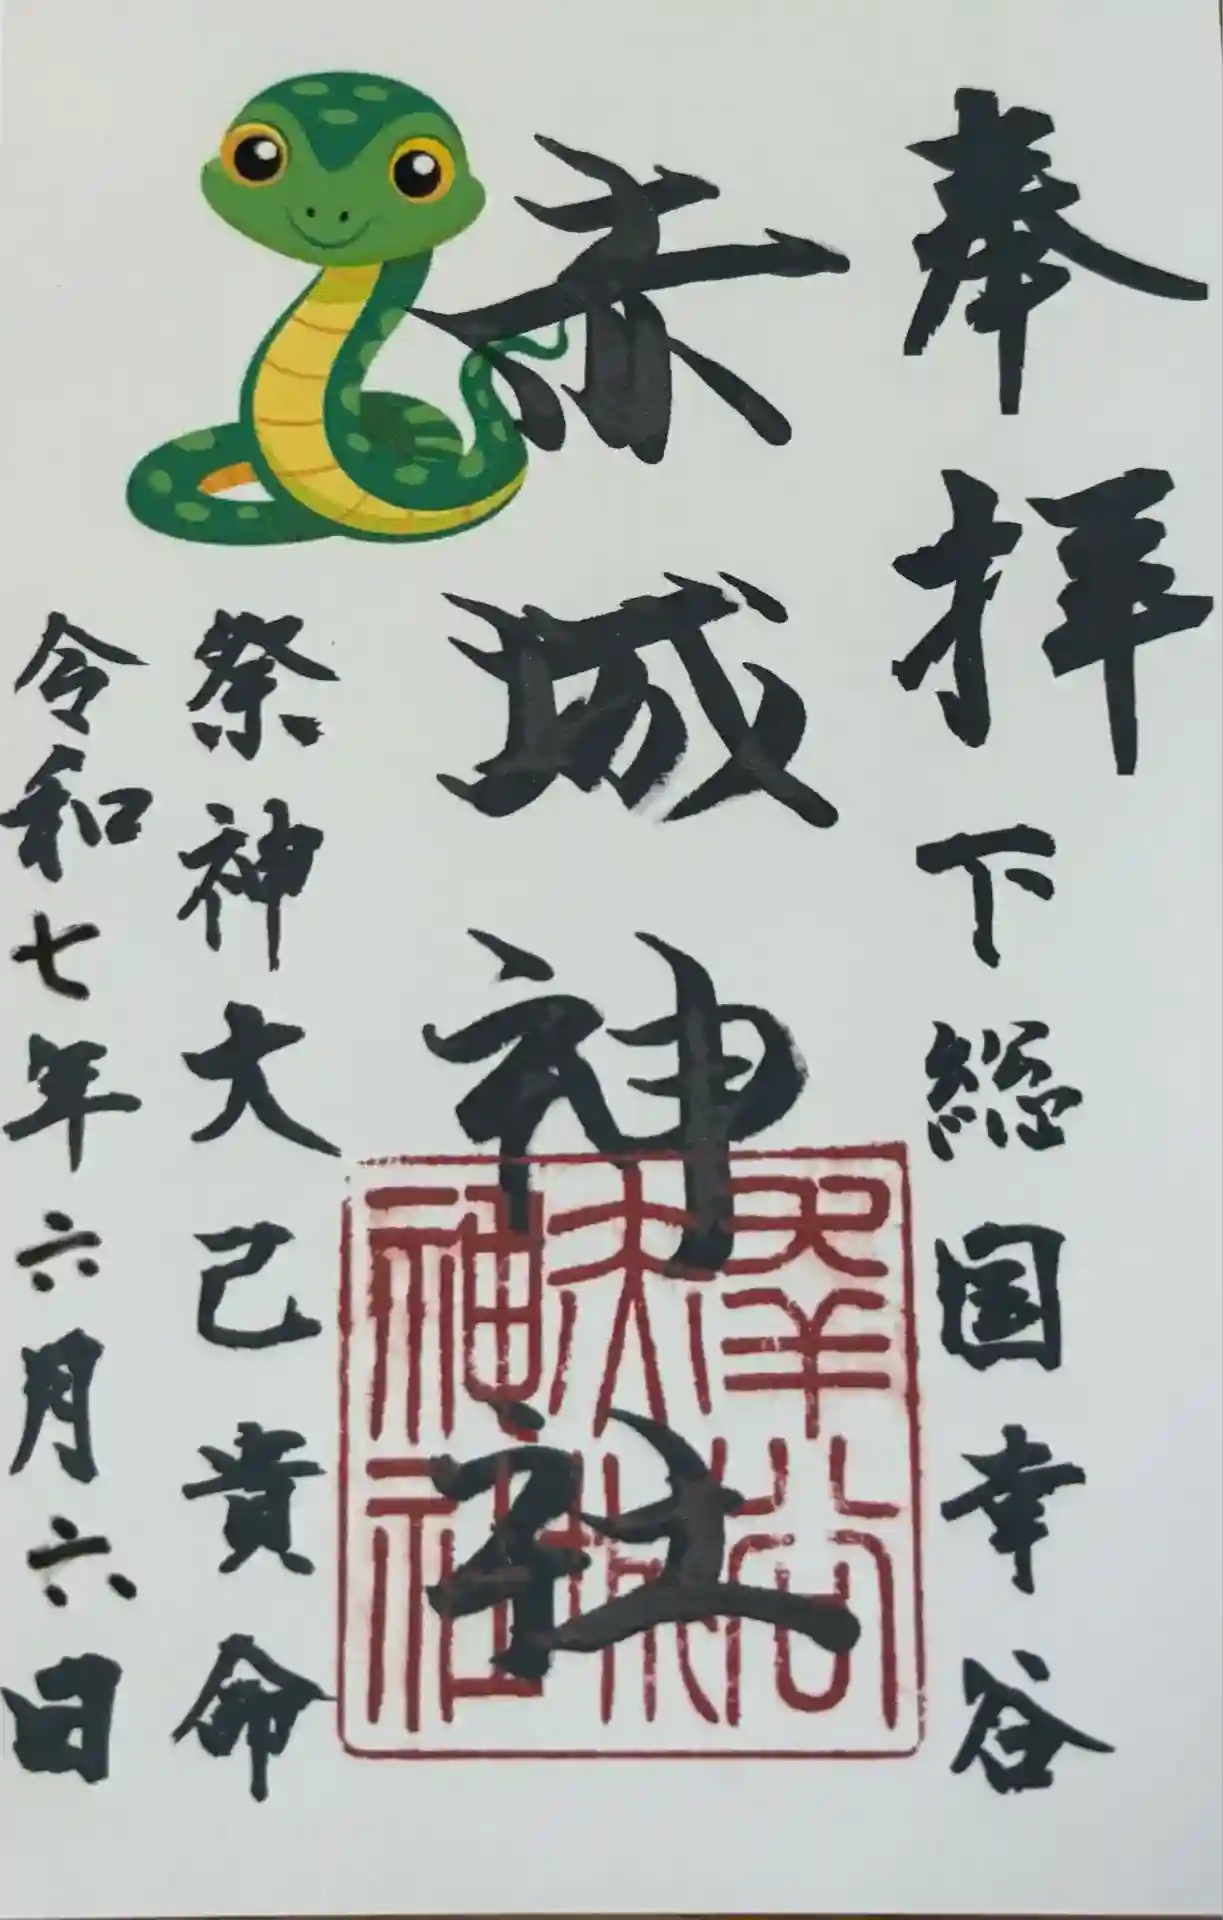 奉拝 下総国幸谷
赤城神社
幸谷
赤城
神社
祭神大己貴命
令和七年六月六日